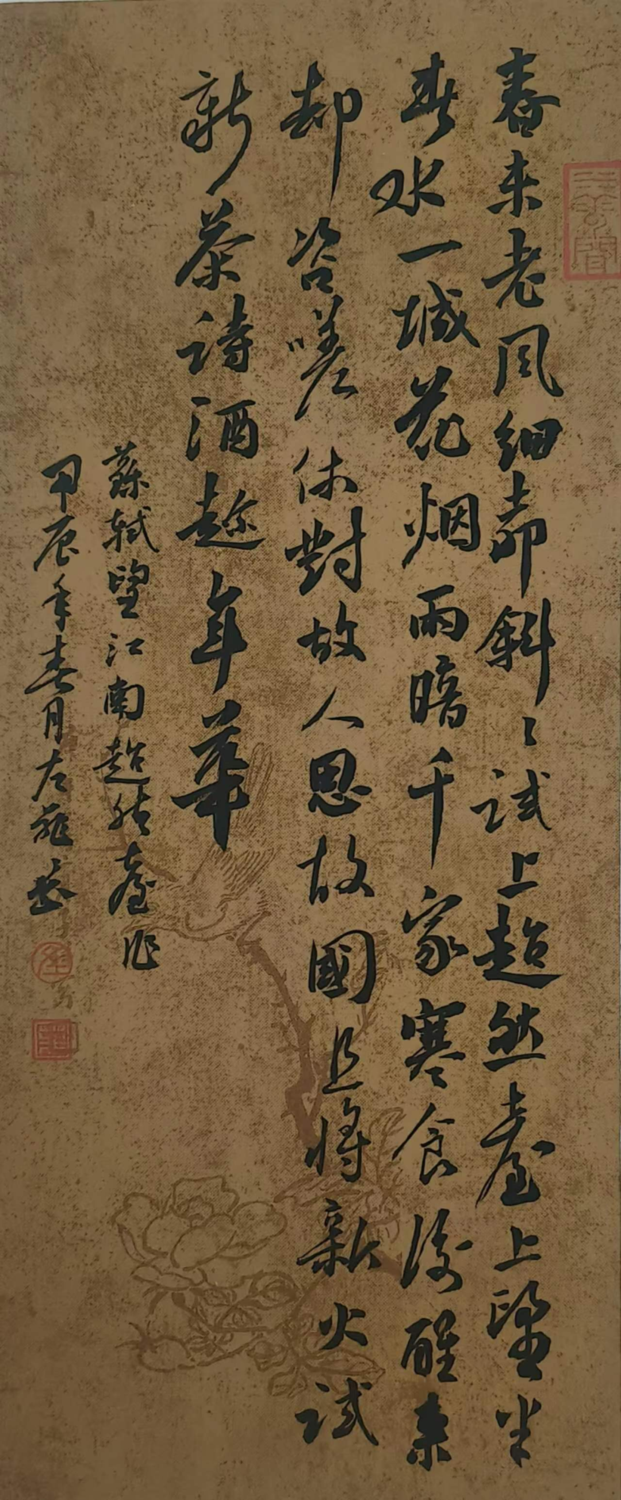 春来老风細柳斜〻試上超然臺上望半
春水一城花烟雨暗千家寒食後醒来
却咨嗟休對故人思故國且將新火試
新茶詩酒趂年華
蘇軾望江南超然臺作
甲辰年春月左书